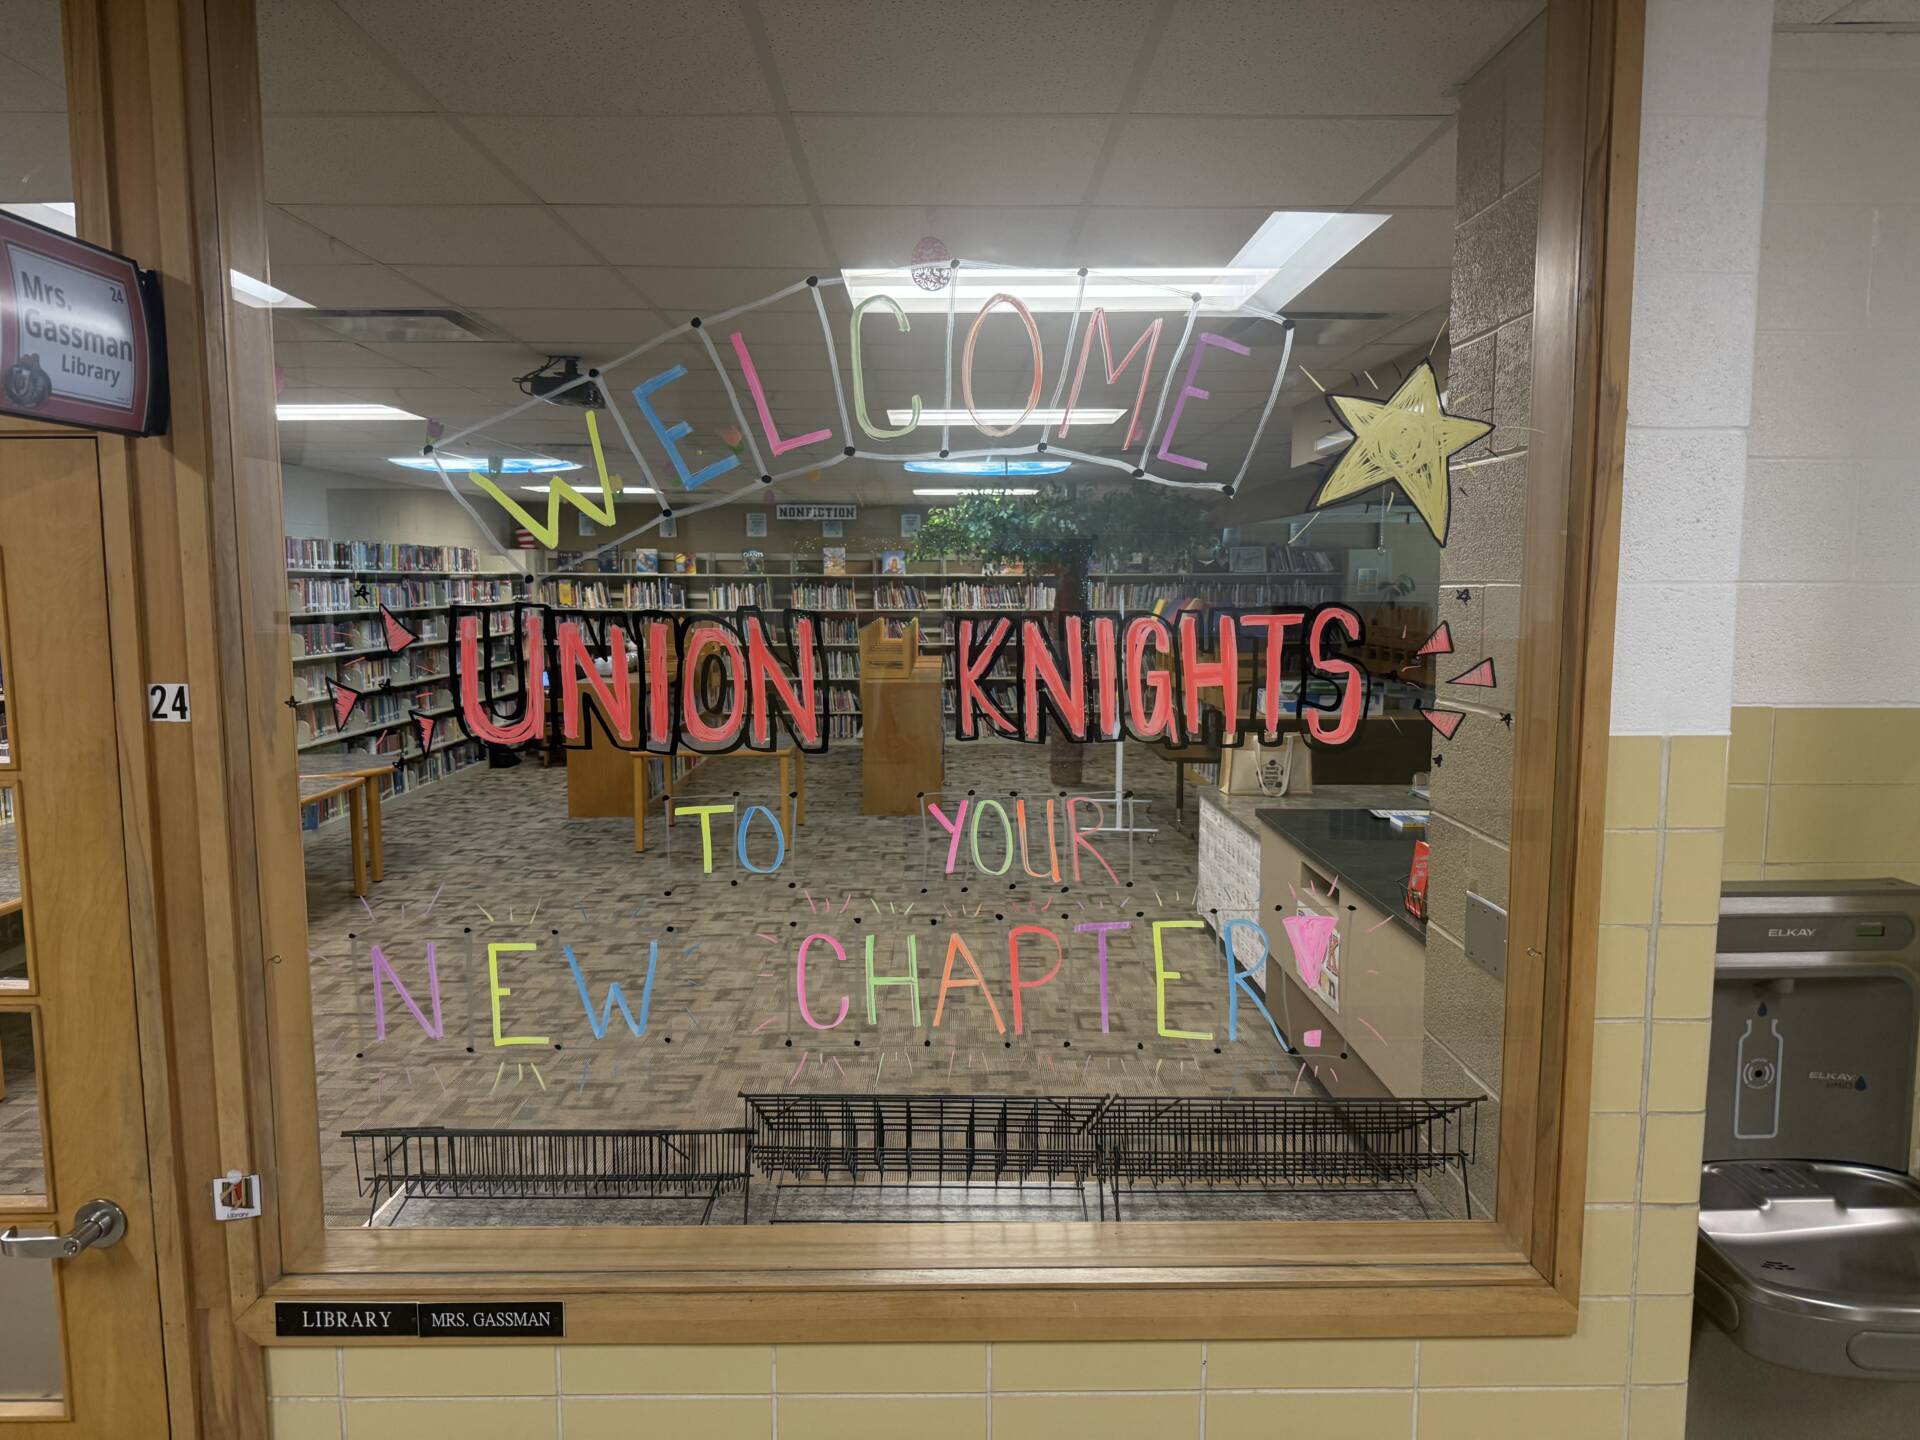 Mrs. 24
Gassman
Library
WELCOME
NONFICTION
UNION KNIGHTS
24
TO YOUR
NEW CHAPTER!
ELKAY
ELKAY
Library
LIBRARY MRS. GASSMAN